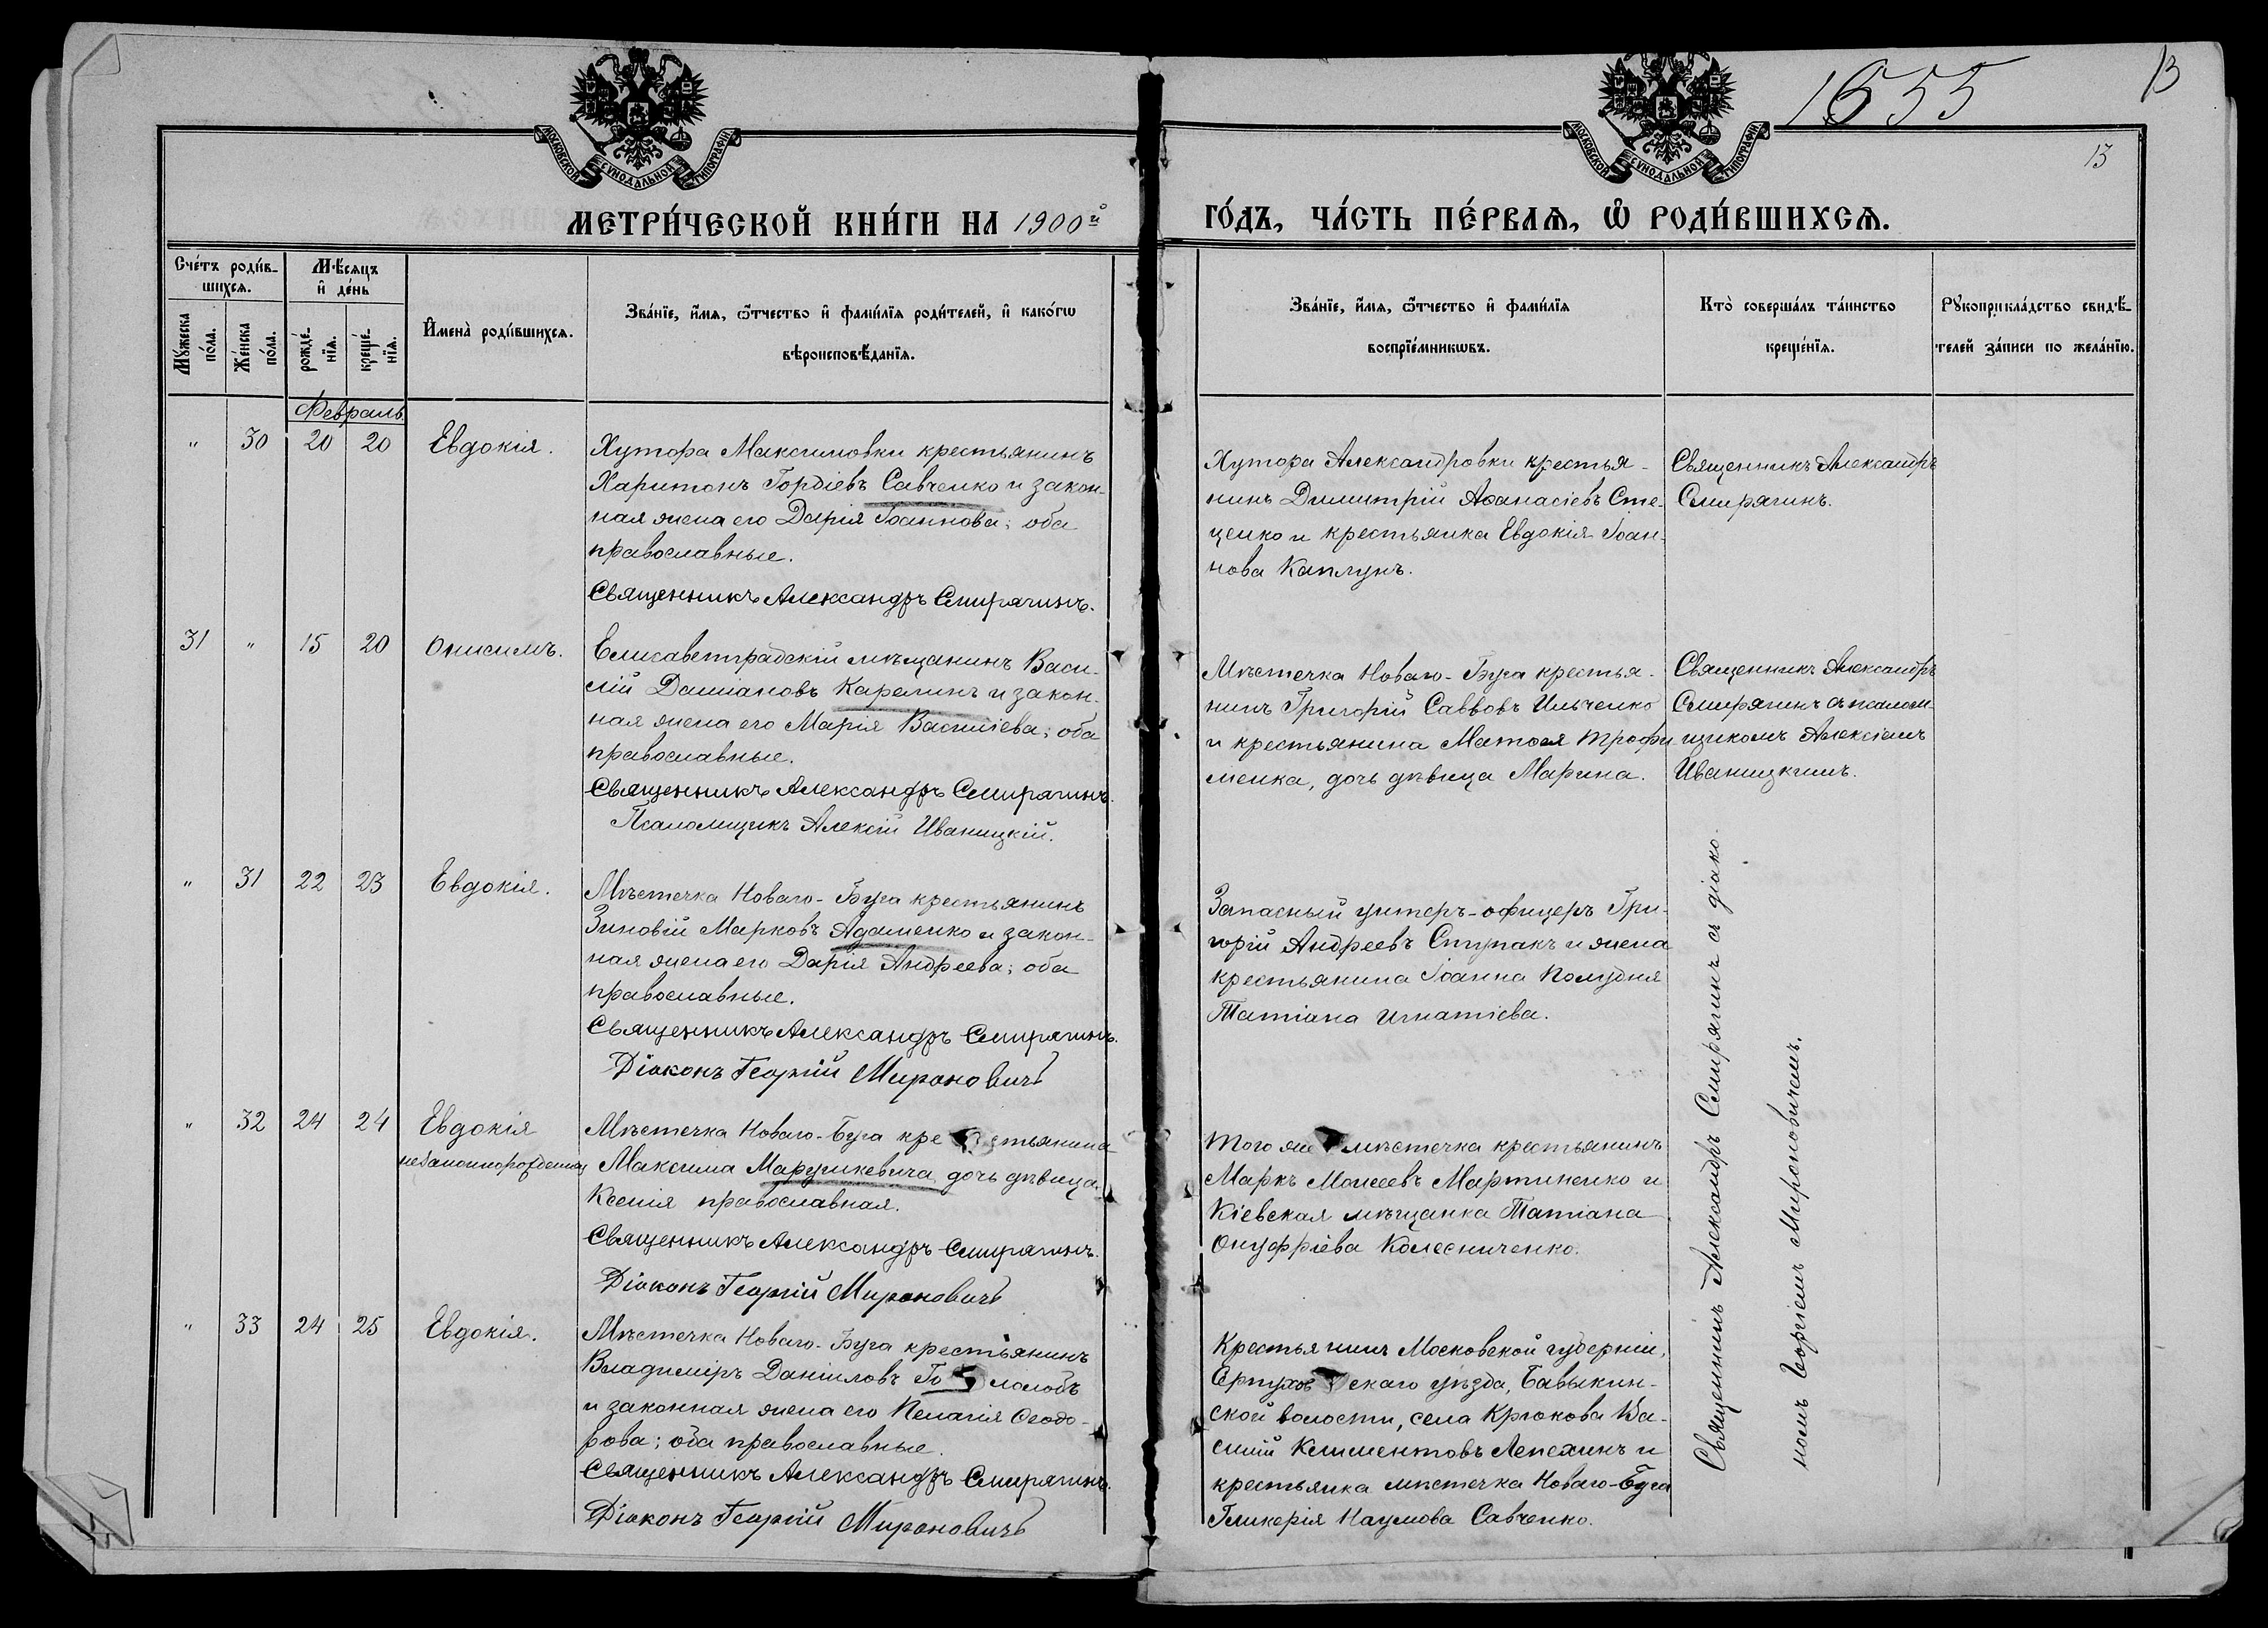 1655
13
13
МОСКОВСКОЙ СѴНОДАЛЬНОЙ ТИПОГРАФІИ
МОСКОВСКОЙ СѴНОДАЛЬНОЙ ТИПОГРАФІИ
МЕТРИ́ЧЕСКОЙ КНИ́ГИ НА 1900й
ГО́ДЪ, ЧА́СТЬ ПЕ́РВАѦ, Ѡ҆ РОДИ́ВШИХСѦ.
Сче́тъ роди́в-
шихсѧ.
Мꙋ́жеска
по́ла.
Же́нска
по́ла.
Мѣ́сѧцъ
и҆ де́нь
рожде́-
нїѧ.
креще́-
нїѧ.
И҆мена̀ роди́вшихсѧ.
Зва́нїе, и҆́мѧ, ѻ҆́тчество и҆ фами́лїѧ роди́телей, и҆ како́гѡ
вѣроисповѣ́данїѧ.
Зва́нїе, и҆́мѧ, ѻ҆́тчество и҆ фами́лїѧ
воспрїе́мникѡвъ.
Кто̀ соверша́лъ та́инство
креще́нїѧ.
Рꙋкоприкла́дство свидѣ́-
телей за́писи по жела́нїю.
Февраль
" 30 20 20 Евдокія.
Хутора Максимовки крестьянинъ
Харитонъ Гордіевъ Савченко и закон-
ная жена его Дарія Іоаннова; оба
православные.
Священникъ Александръ Смирягинъ.
Хутора Александровки крестья-
нинъ Димитрій Аѳанасіевъ Сте-
ценко и крестьянка Евдокія Іоан-
нова Каплунъ.
Священникъ Александръ
Смирягинъ.
31 " 15 20 Онисимъ.
Елисаветградскій мѣщанинъ Васи-
лій Даміановъ Карелинъ и закон-
ная жена его Марія Василіева; оба
православные.
Священникъ Александръ Смирягинъ.
Псаломщикъ Алексій Иваницкій.
Мѣстечка Новаго-Буга крестья-
нинъ Григорій Саввовъ Ильченко
и крестьянина Матѳея Трофи
менка, дочь дѣвица Марина.
Священникъ Александръ
Смирягинъ съ псалом-
щикомъ Алексіемъ
Иваницкимъ.
" 31 22 23 Евдокія.
Мѣстечка Новаго-Буга крестьянинъ
Зиновій Марковъ Адаменко и закон-
ная жена его Дарія Андреева; оба
православные.
Священникъ Александръ Смирягинъ.
Діаконъ Георгій Мироновичъ
Запасный унтеръ-офицеръ Гри-
горій Андреевъ Ступакъ и жена
крестьянина Іоанна Полудня
Татіана Игнатіева.
Священникъ Александръ Смирягинъ съ діако-
номъ Георгіемъ Мироновичемъ.
" 32 24 24 Евдокія
незаконнорожденная
Мѣстечка Новаго-Буга кре стьянина
Максима Марушкевича дочь дѣвица
Ксенія православная.
Священникъ Александръ Смирягинъ.
Діаконъ Георгій Мироновичъ
Того же мѣстечка крестьянинъ
Маркъ Моисеевъ Мартиненко и
Кіевская мѣщанка Татіана
Онуфріева Колесниченко.
" 33 24 25 Евдокія.
Мѣстечка Новаго-Буга крестьянинъ
Владиміръ Даніиловъ Го лолобъ
и законная жена его Пелагія Ѳеодо-
рова; оба православные.
Священникъ Александръ Смирягинъ.
Діаконъ Георгій Мироновичъ
Крестьянинъ Московской губерніи,
Серпухов скаго уѣзда, Бавыкин-
ской волости, села Крюкова Ва-
силій Климентовъ Лепехинъ и
крестьянка мѣстечка Новаго-Буга
Гликерія Наумова Савченко.